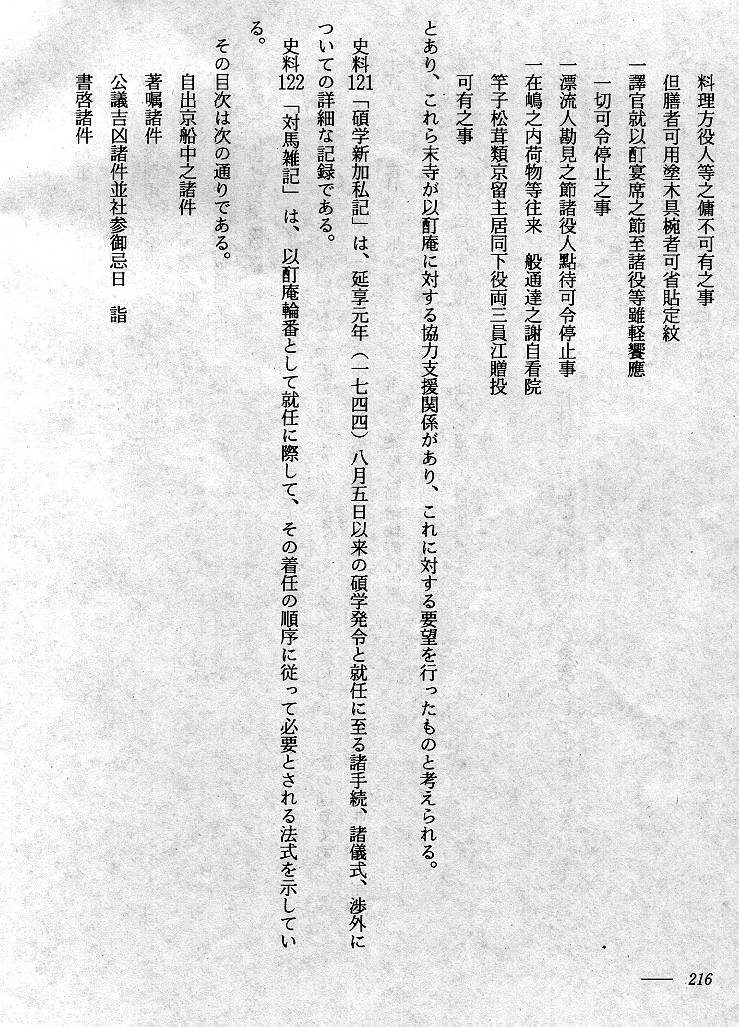 料理方役人等之傭不可有之事
但膳者可用塗木具椀者可省貼定紋
一譯官就以酊宴席之節至諸役等雖軽饗應
一切可令停止之事
一漂流人勘見之節諸役人點待可令停止事
一在嶋之内荷物等往来　般通達之謝自看院
竿子松茸類京留主居同下役両三員江贈投
可有之事
とあり、これら末寺が以酊庵に対する協力支援関係があり、これに対する要望を行ったものと考えられる。
史料121「碩学新加私記」は、延享元年（一七四四）八月五日以来の碩学発令と就任に至る諸手続、諸儀式、渉外に
ついての詳細な記録である。
史料122「対馬雑記」は、以酊庵輪番として就任に際して、その着任の順序に従って必要とされる法式を示してい
る。
その目次は次の通りである。
自出京船中之諸件
著嘱諸件
公議吉凶諸件並社参御忌日　詣
書啓諸件
216